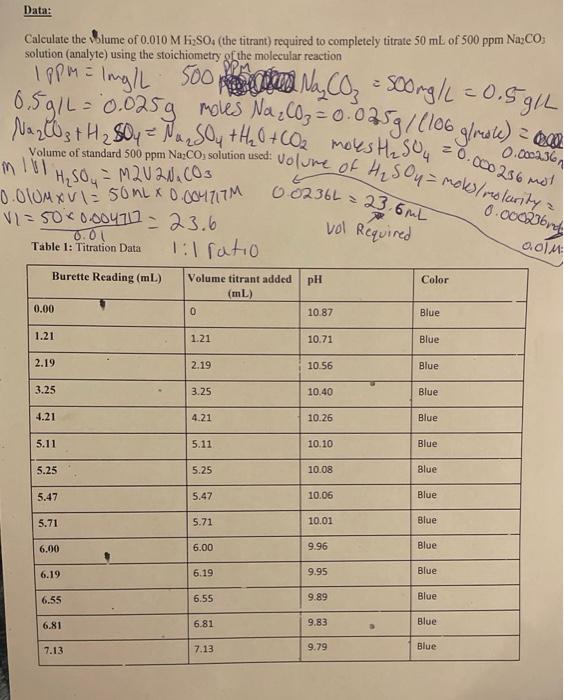 Data:
Calculate the volume of 0.010 M H₂SO₄ (the titrant) required to completely titrate 50 mL of 500 ppm Na₂CO₃
solution (analyte) using the stoichiometry of the molecular reaction
1 PPM = 1mg/L 500 PPM Na₂CO₃ = 500mg/L = 0.5g/L
0.5g/L = 0.025g moles Na₂CO₃ = 0.025g/(106 g/mole) =
0.000236m
Na₂CO₃ + H₂SO₄ = Na₂SO₄ + H₂O + CO₂ moles H₂SO₄ = 0.000236 mol
Volume of standard 500 ppm Na₂CO₃ solution used: volume of H₂SO₄ = moles/molarity =
M1V1 H₂SO₄ = M2V2 Na₂CO₃
0.000236mol
0.01M
0.010M x V1 = 50mL x 0.004717M 0.0236L = 23.6mL
V1 = 50 x 0.004717 = 23.6
0.01
vol Required
Table 1: Titration Data 1:1 ratio
Burette Reading (mL) Volume titrant added (mL) pH Color
0.00 0 10.87 Blue
1.21 1.21 10.71 Blue
2.19 2.19 10.56 Blue
3.25 3.25 10.40 Blue
4.21 4.21 10.26 Blue
5.11 5.11 10.10 Blue
5.25 5.25 10.08 Blue
5.47 5.47 10.06 Blue
5.71 5.71 10.01 Blue
6.00 6.00 9.96 Blue
6.19 6.19 9.95 Blue
6.55 6.55 9.89 Blue
6.81 6.81 9.83 Blue
7.13 7.13 9.79 Blue